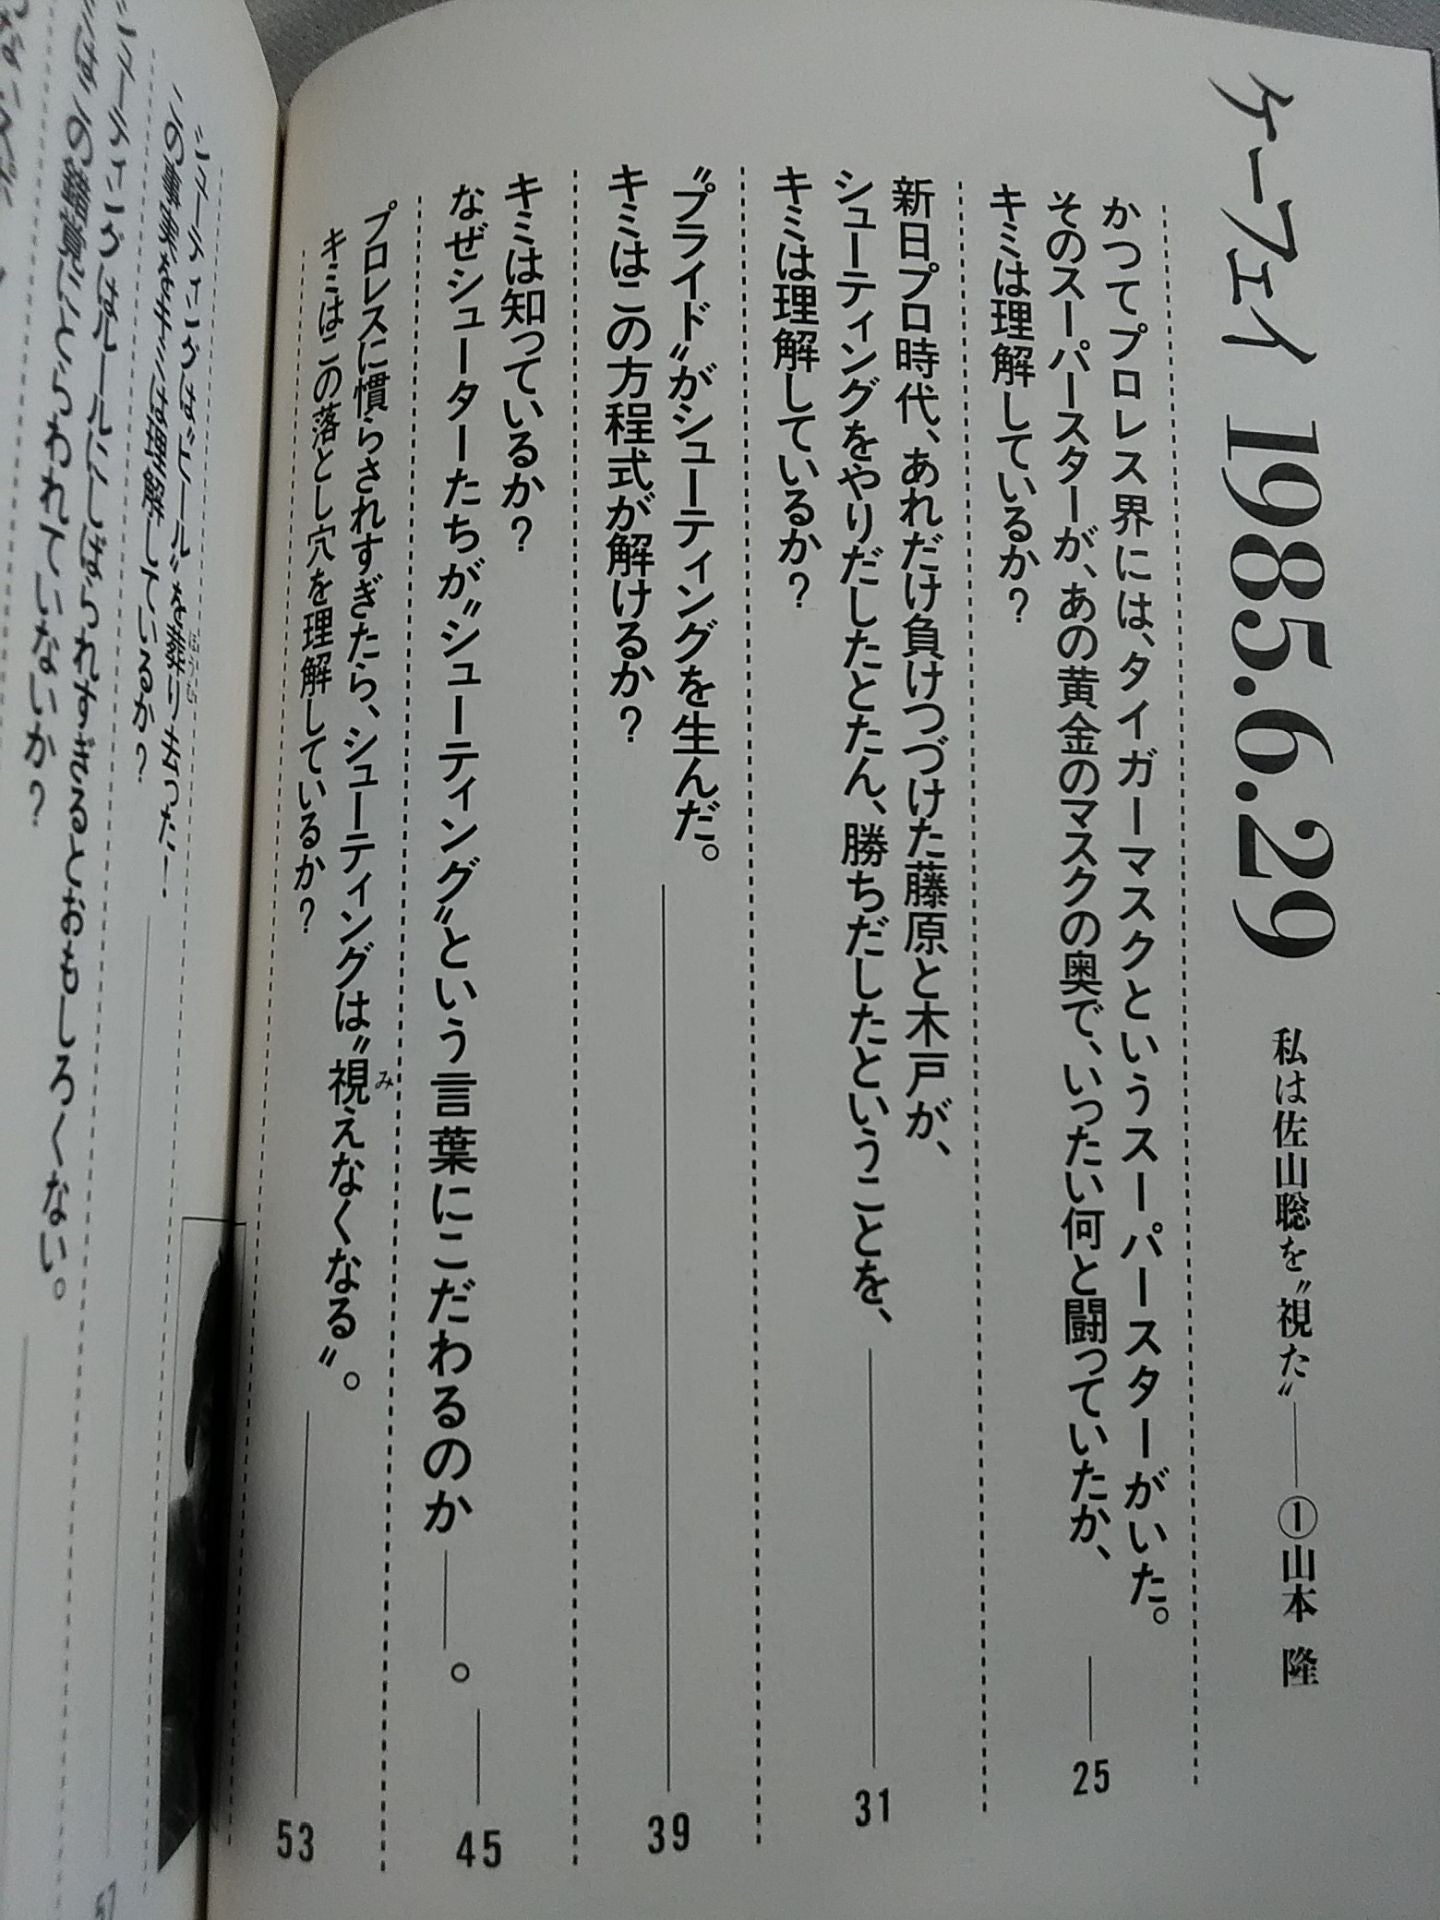 ケーフェイ 1985.6.29 私は佐山聡を〝視た〟――①山本 隆
かつてプロレス界には、タイガーマスクというスーパースターがいた。
そのスーパースターが、あの黄金のマスクの奥で、いったい何と闘っていたか、
キミは理解しているか？ 25
新日プロ時代、あれだけ負けつづけた藤原と木戸が、
シューティングをやりだしたとたん、勝ちだしたということを、
キミは理解しているか？ 31
〝プライド〟がシューティングを生んだ。
キミはこの方程式が解けるか？ 39
キミは知っているか？
なぜシューターたちが〝シューティング〟という言葉にこだわるのか――。 45
プロレスに慣らされすぎたら、シューティングは〝視えなくなる〟。
み
キミはこの落とし穴を理解しているか？ 53
シューティングは〝ヒール〟を葬り去った！
ほうむ
この事実をキミは理解しているか？ 57
シューティングはルールにしばられすぎるとおもしろくない。
キミはこの錯覚にとらわれていないか？